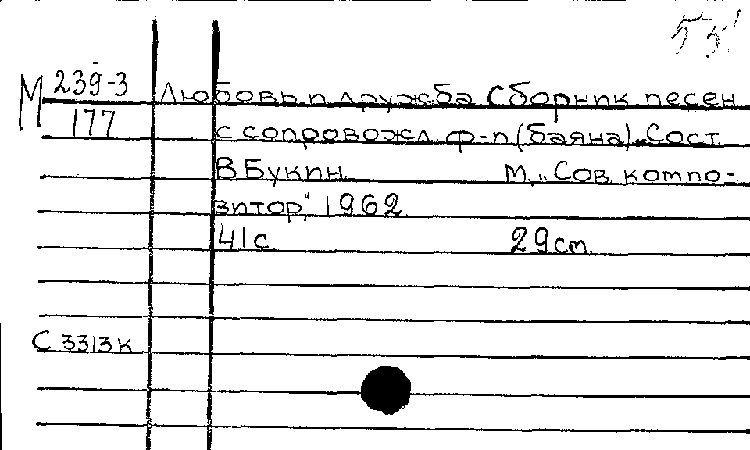 55
М 239-3 Любовь и дружба Сборник песен
177 с сопровожд ф-п (баяна). Сост
В Букин М, „Сов компо-
зитор", 1962
41с 29cm
С 3313к